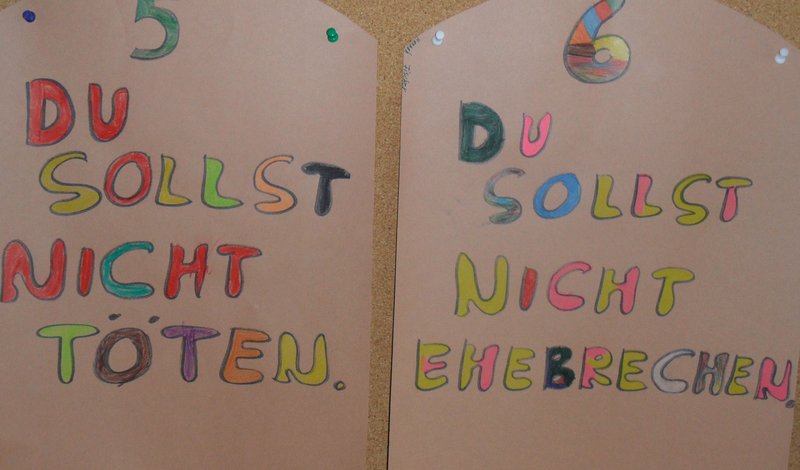 5
DU
SOLLST
NICHT
TÖTEN.
6
DU
SOLLST
NICHT
EHEBRECHEN.